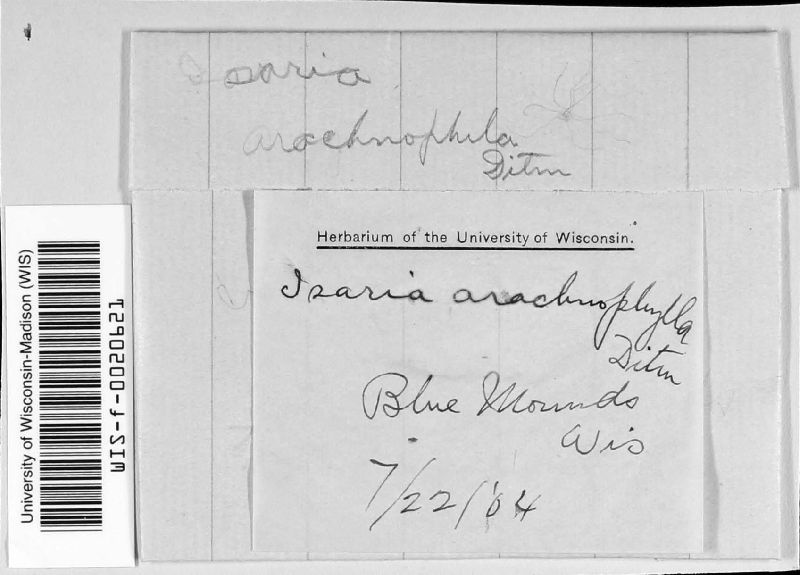 Isaria
arachnophila
Ditm
Herbarium of the University of Wisconsin.
Isaria arachnophylla
Ditm
Blue Mounds
Wis
7/22/'04
University of Wisconsin-Madison (WIS)
WIS-f-0020621